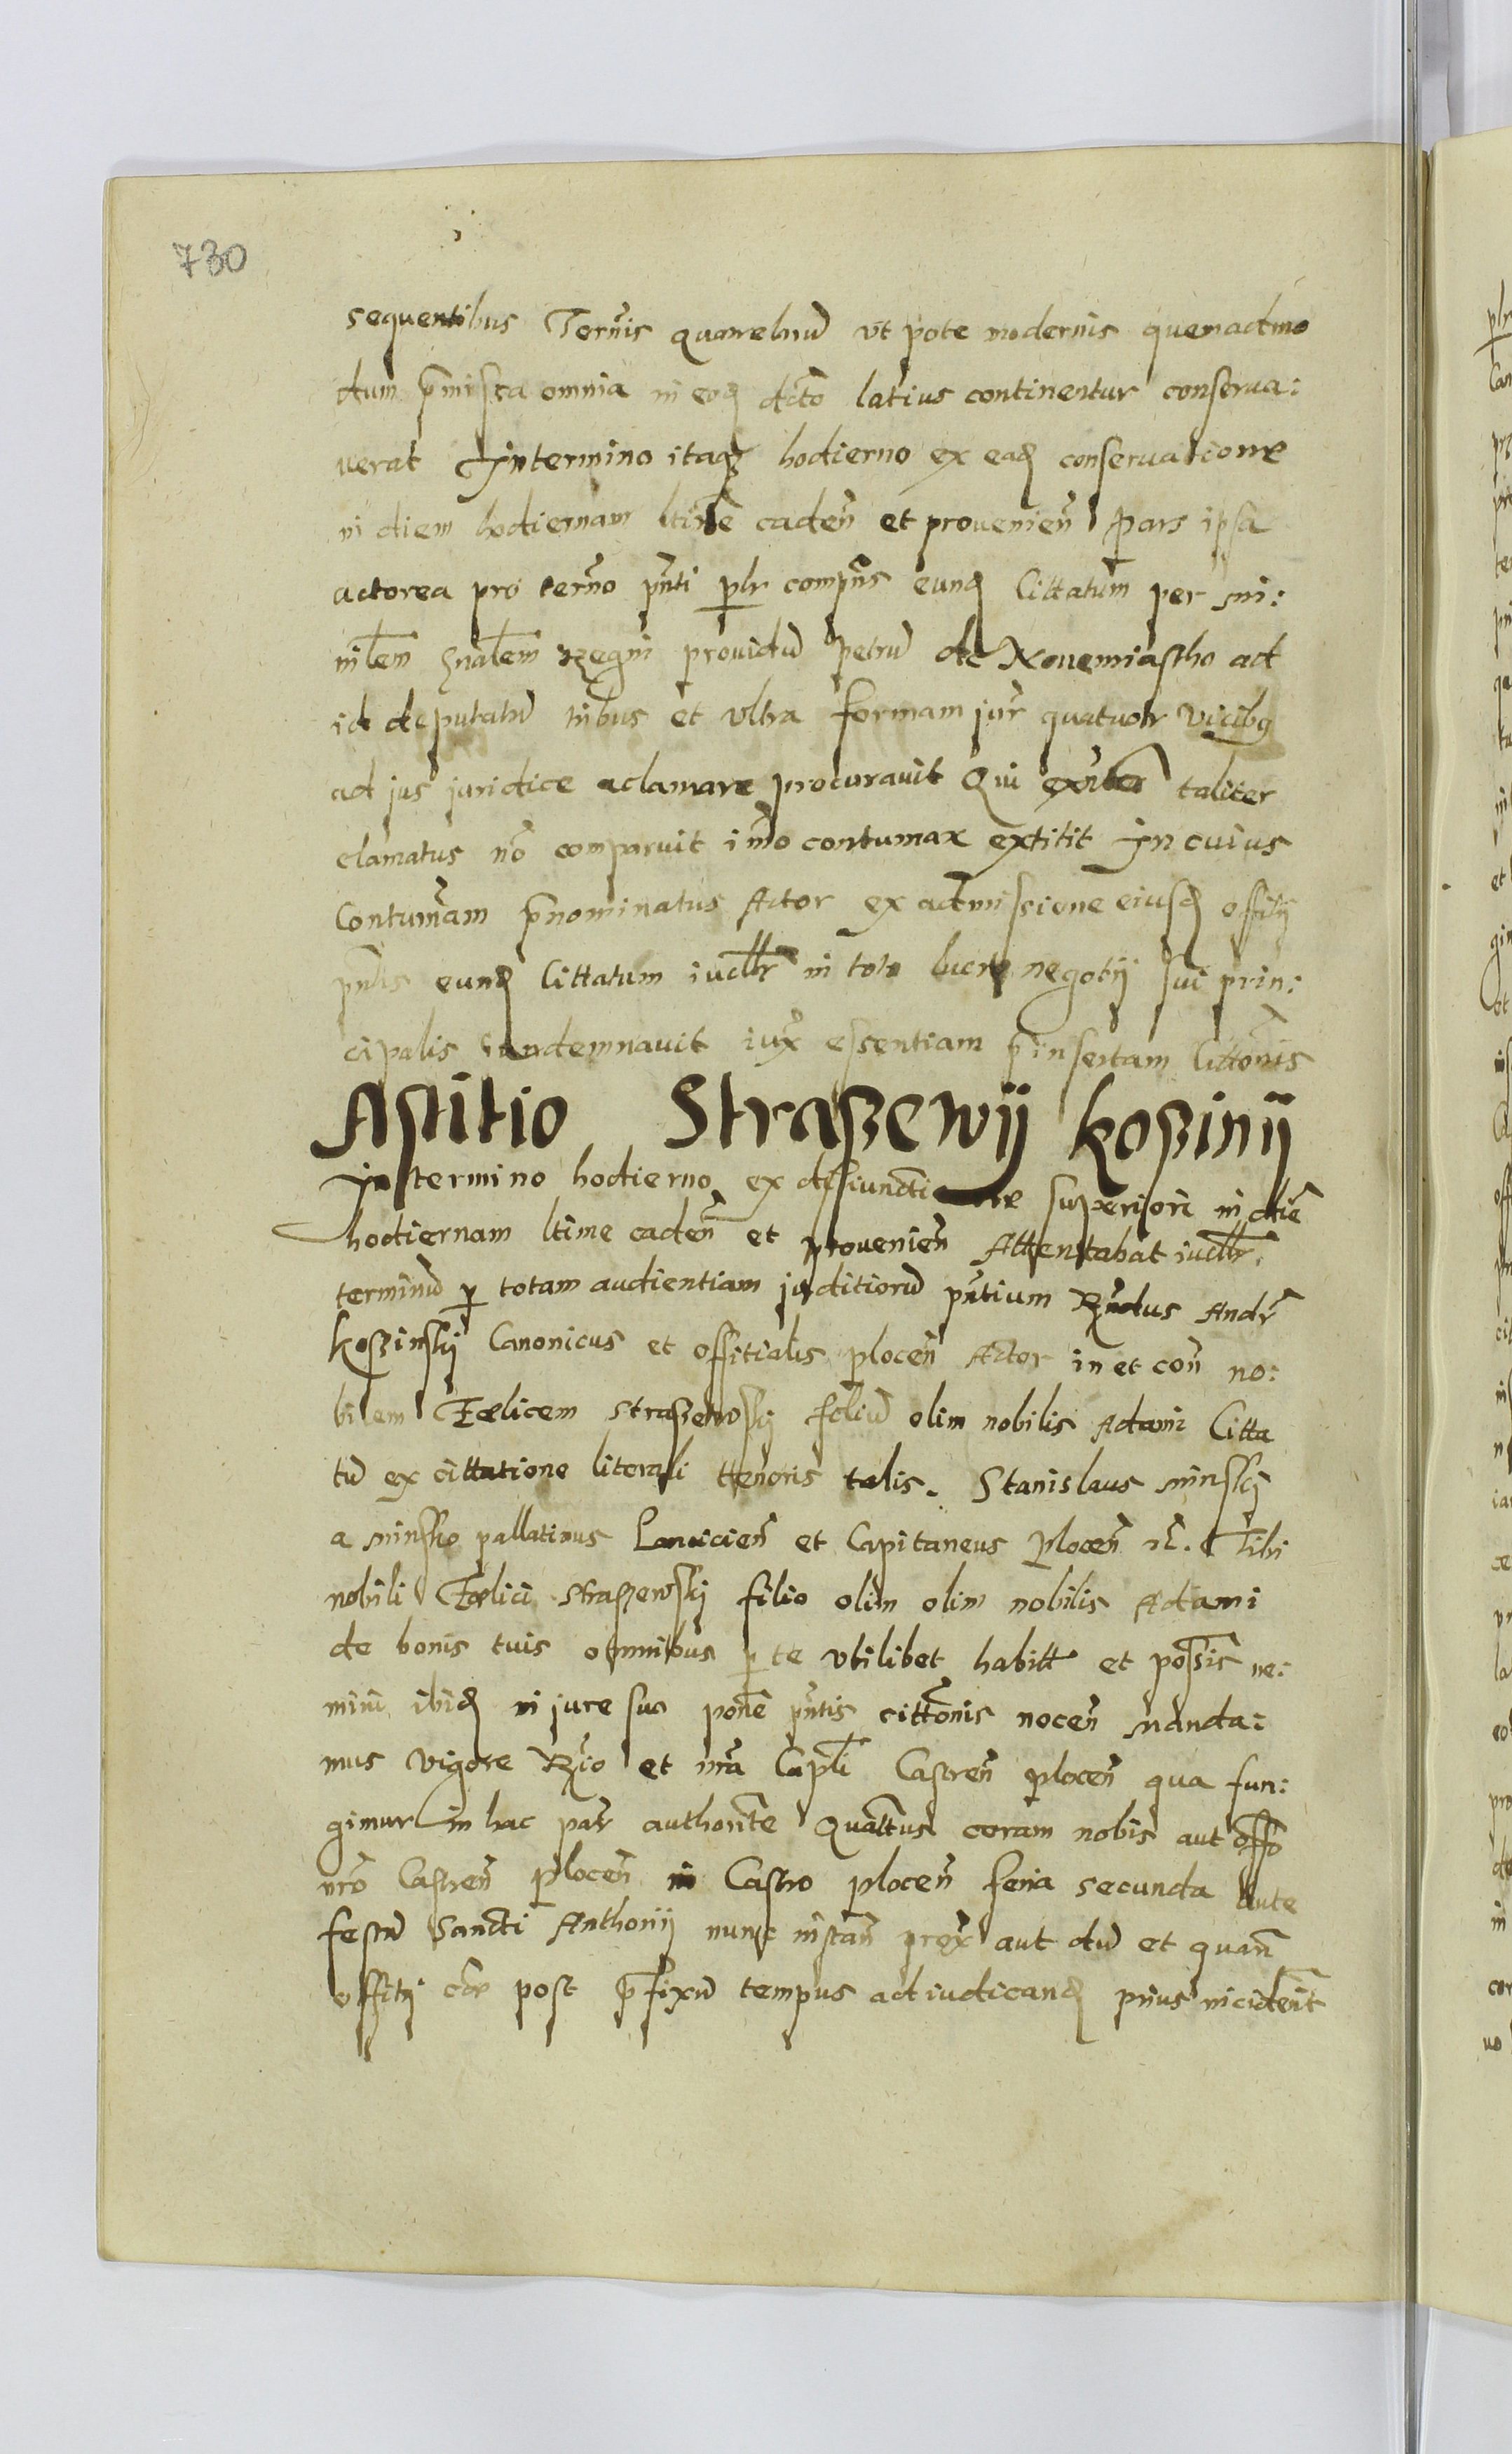 730
sequentibus Termis quarelarum ut pote modernis quemadmo
dum pmissa omnia in eod dcto latius continentur conserua:
uerat In termino itaq hodierno ex ead conseruatione
in diem hodiernam ltime caden et prouenien Pars ipsa
actorea pro termo pnti plr compns eund Cittatum per mi:
nilem gnalem Regni prouidu Petru de Nouemiastho ad
id deputatu tribus et ultra formam jur quatuor vicibq
ad jus juridice aclamare procurauit Qui taliter
clamatus no comparuit imo contumax extitit In cuius
Contumam pnominatus Actor ex admissione eiusd offitij
pntis eund Cittatum iudllr in toto lucro negotij sui prin:
cipalis condemnauit iux essentiam pinsertam Cittonis
Astitio Straßewij koßinij
In termino hodierno ex superiori in die
hodiernam ltime caden et prouenien Attentabat iudllr
terminu p totam audientiam juditioru pntium Rndus Andr
koßinskij Canonicus et offitialis plocen Actor in et con no:
bilem Foelicem straßewskij filiu olim nobilis Adami Citta
tu ex cittatione literali ttenoris talis. Stanislaus minskij
a minsko pallatinus Lancicien et Capitaneus Plocen Tibi
nobili Foelici straßewskij filio olim olim nobilis Adami
de bonis tuis omnibus p te ubilibet habitt et possis ne:
mini ibid in jure suo pone pntis cittonis nocen manda:
mus vigore Rgio et nra Capli Castren plocen qua fun:
gimur in hac par authorite Quattus coram nobis aut offo
nro Castren plocen in Castro plocen feria secunda ante
festu Sancti Anthonij nunc instan prox aut du et quan
offitij cor post pfixu tempus adiudicand prius inciderit